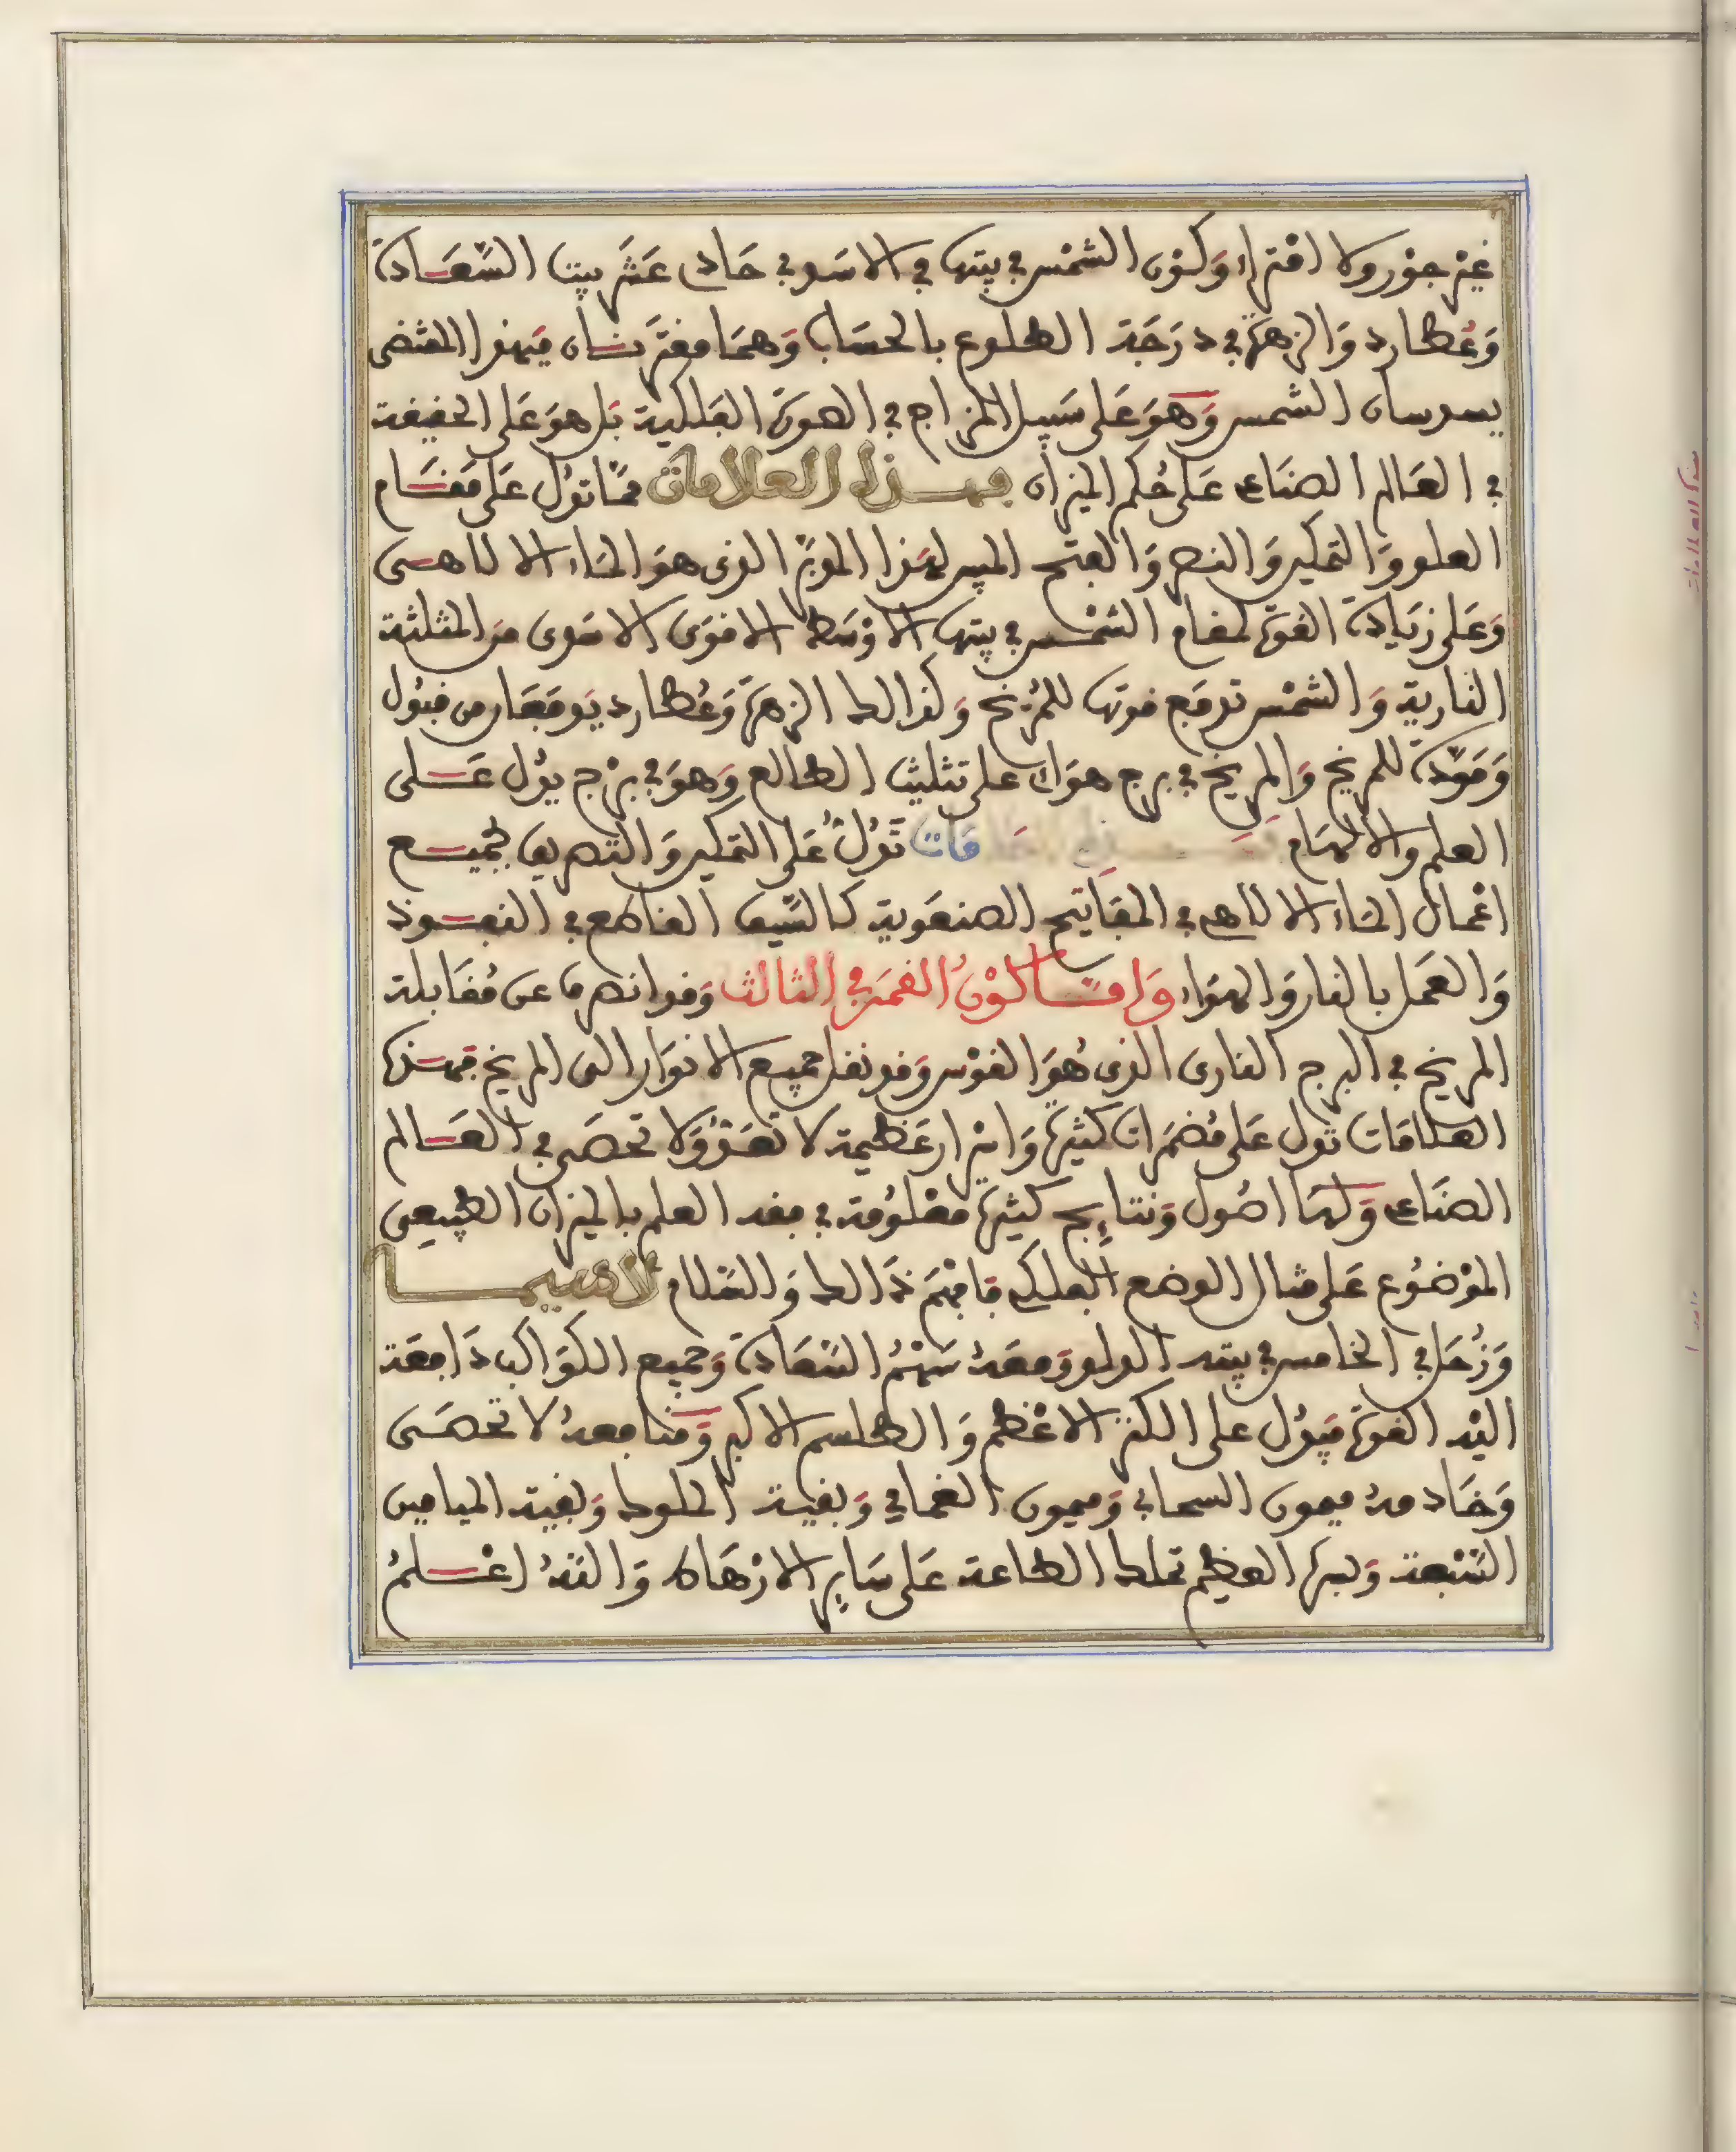 غير جور ولا افتراء وَكون الشمْس في بيتها في الاسَد في حَادي عَشَر بيت السَّعَادة
وَعُطارد وَالزهرَة في دَرَجَة الطلوع بالحسَاب وَهمَا مقترنَان المقتضى
الشمس وَهوَ عَلى سَبيل المزاج في الصورَة الفلكية بَل هوَ عَلى الحقيقة
في العَالم الصنَاعي عَلى حُكم الميزان فهذه العلامات ممّا تدُل عَلى مَقَام
العلو وَالتمكين وَالنصر وَالفتح المبين لهَذا المَوبَذ الذي هوَ المَاء الالاهى
وَعَلى زيَادة القوة لمقام الشمْس في بيتها الاوْسَط الاقوَى من المثلثة
النارية وَالشمْس تدفَع قوتها للمرّيخ وَكذالك الزهرَة وَعُطارد يَدفعَان من قبُول
وَمَوَدّة للمريخ وَالمريخ في برج هوَائي على تثليث الطالع وَهوَ في برْج يدُل عَلى
العلم وَالالهَام مَات تَدُلّ عَلى التمكين وَالتصريف بجميع
اعْمال المَاء الالاهي في المفَاتيح الصنعَوية كالسَّيف القاطع في النفوذ
وَالعَمل بالنار وَالهوَاء وَامّا كوْن القمَر في الثالث وَقد انصرف عن مُقَابلة
المريخ في البرج النارى الذي هُوَ القوْس وَقد نقل جميع الانوَار الى المريخ فهذه
العلامَات تدُل عَلى مُضمَرات كثيرة وَاسْرار عَظيمة لا تعَدّ وَلا تحصَى في العَالم
الصنَاعي وَلهَا اصُول وَنتايج كثيرة معْلومَة في فقد العلم بالميزان الطبيعي
الموْضُوع عَلى مثال الوضع الفلكي فافهَمْ ذَالك وَالسَّلام لاسيما
وَزُحَل في الخامس في بيته الدلو وَمعَهُ سَهْمُ السَّعَادة وَجميع الكوَاكب دَافعَة
اليْه القوة فيدُل على الكنز الاعْظم وَالطلسم الاكبر وَمنافعهُ لا تحصَى
وَخَادمهُ ميمون السحابي وَميمون الغمامي وَبقية الملوك وَبقية الميامين
السَّبْعَة العظيم تملك الطاعة عَلى سَاير الارْهَاط وَاللهُ اعْلمُ